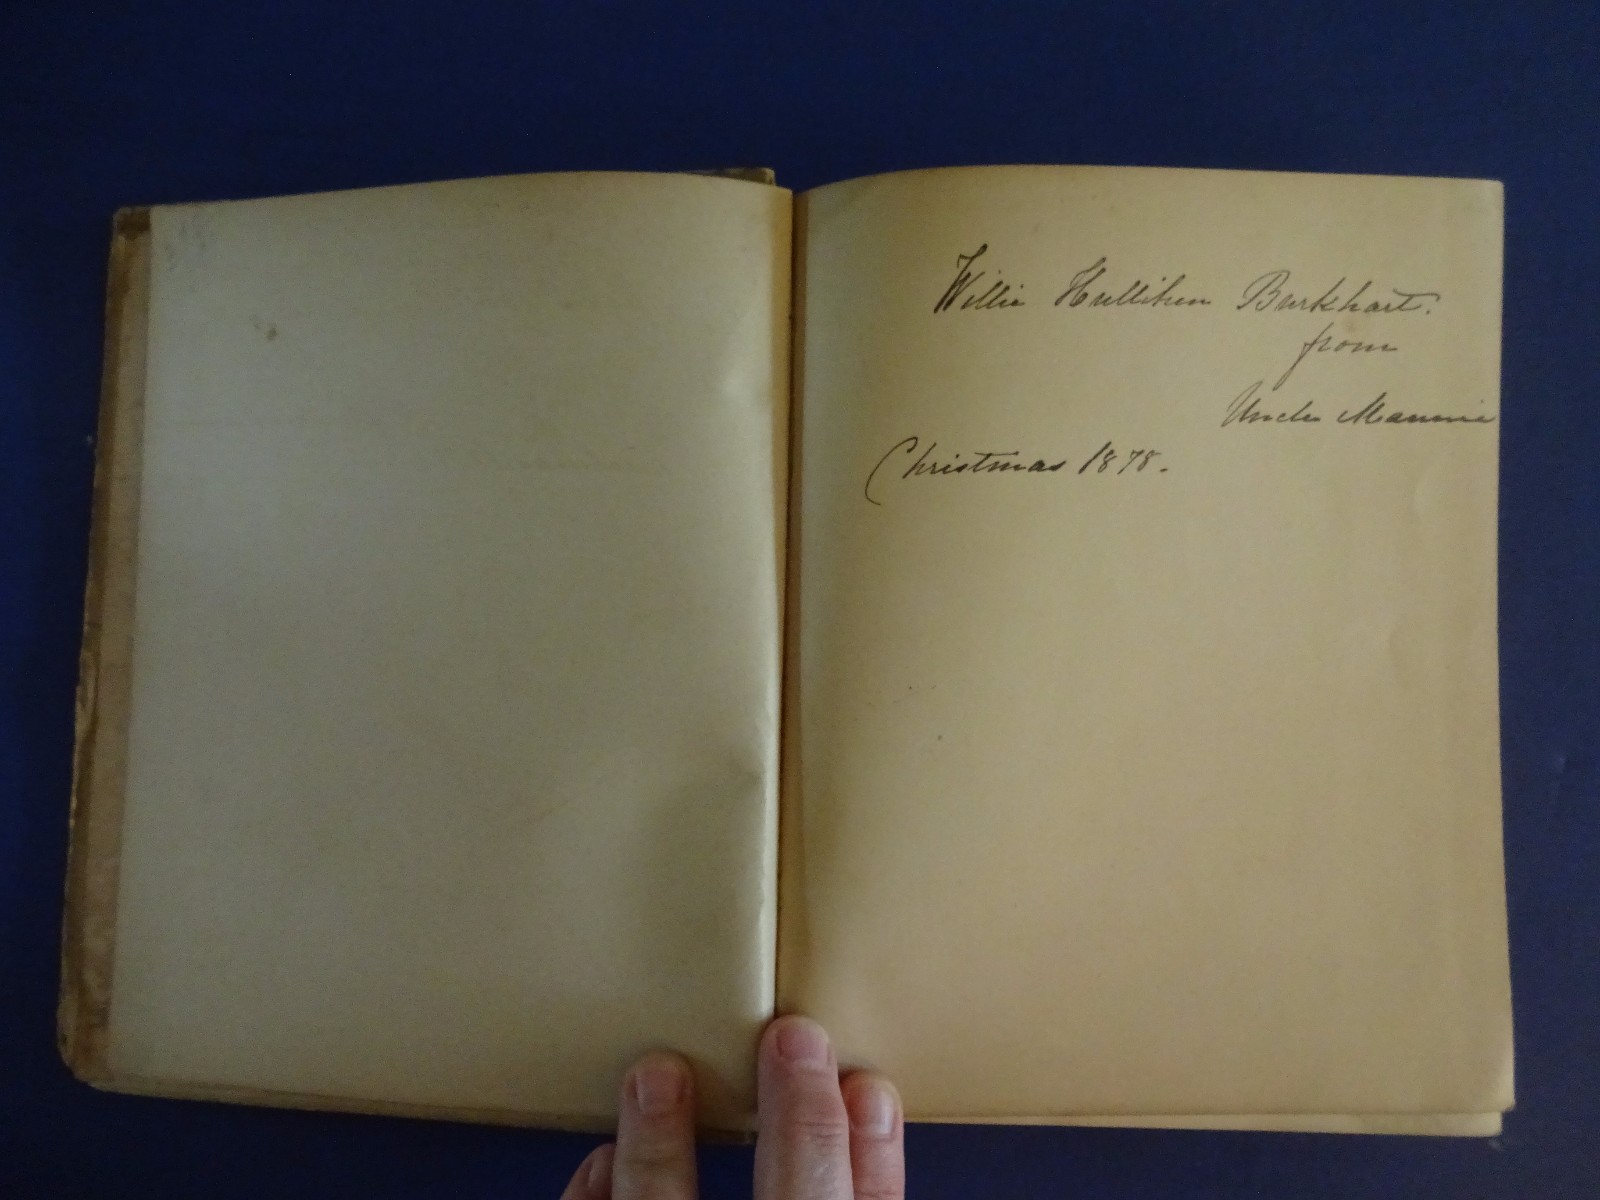 Willie Hullihen Burkhart.
from
Uncle Mannie
Christmas 1878.